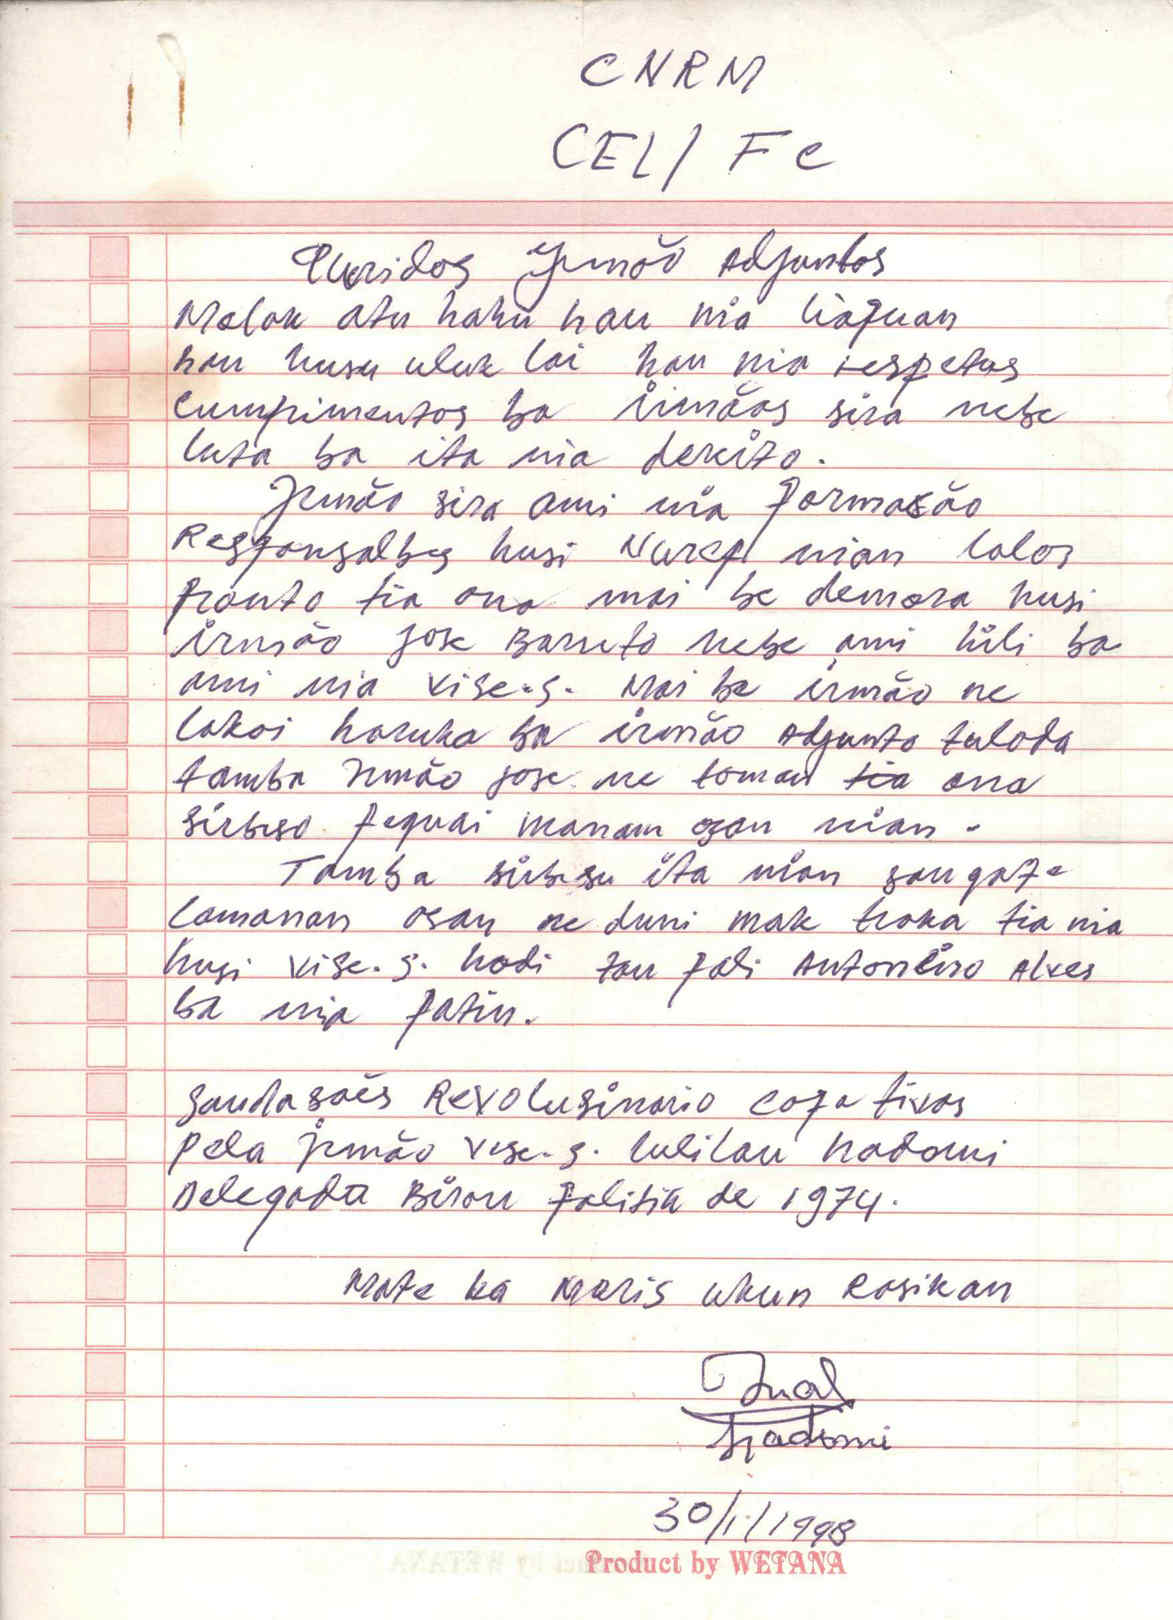 CNRM
CEL/ FC
Queridos Irmão Adjuntos
Molok atu hahu hau nia liafuan
hau husu uluk lai hau nia respetus
Cumprimentos ba irmãos sira nebe
luta ba ita nia dereito.
Irmão sira ami nia formasão
Responsalbes husi Nurep nian lolos
pronto tia ona mai be demora husi
irmão Jose Barreto nebe ami hili ba
ami nia vise.s. Mai be irmão ne
lakoi haruka ba irmão Adjunto tuloda
tamba Irmão jose ne toman tia ona
sirbiso fequai manam osan nian.
Tamba sirbisu ita nian
lamanan osan ne duni mak troka tia nia
husi vise.s. hodi tau fali Antonino Alves
ba nia fatin.
Saudasoẽs Revolusinario
Pela Irmão vise.s. Lulilau hadomi
Delegadu Birou Politik de 1974.
Mate ka Moris Ukun Rasikan
hadomi
30/1/1998
Product by WETANA